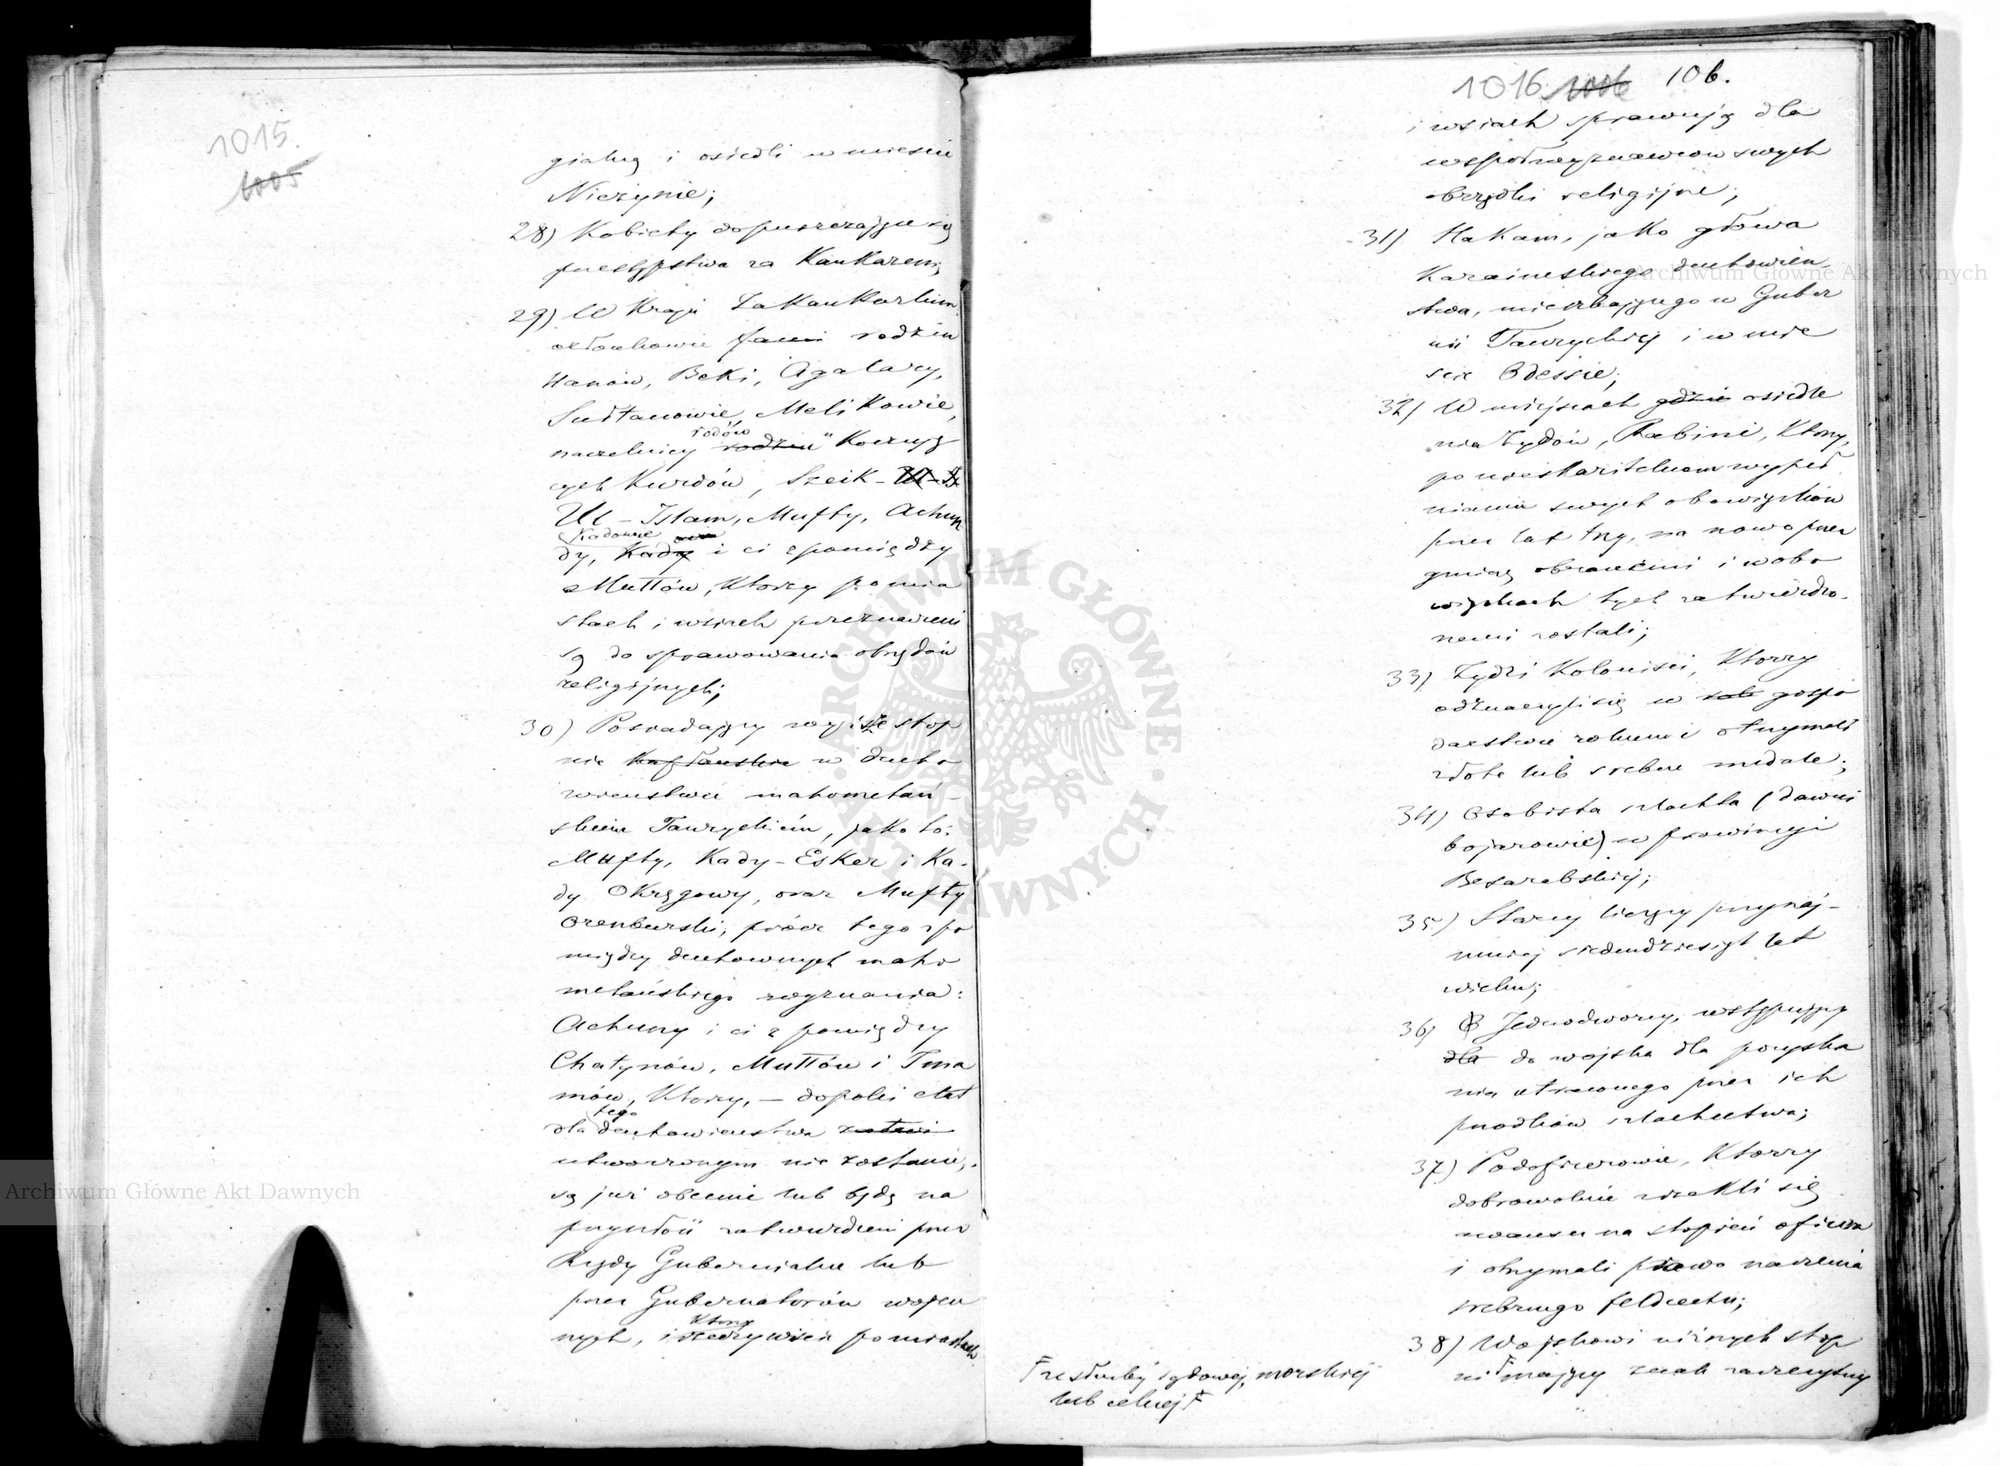 1015.
1005
gialną i osiedli w mieście
Nieżynie;
28) Kobiety dopuszczające się
przestępstwa za Kaukazem;
29) W Kraju Zakaukazkim
członkowie familii rodzin
Hanów, Beki, Agalary,
Sułtanowie, Melikowie,
rodów
naczelnicy rodzin Koczują
cych Kurdów, Szeik-Ul-
Ul-Islam, Mufty, Achun
Kadowie
dy, Kady i ci z pomiędzy
Mułłów, Którzy po mia
stach i wsiach przeznaczeni
są do sprawowania obrzędów
religijnych;
30) Posiadający wyższe stop
nie kapłańskie w ducho
wieństwie mahometań-
skiem Tauryckiém, jako to:
Mufty, Kady-Esker i Ka-
dy Okręgowy, oraz Mufty
Orenburski, prócz tego z po
między duchownych maho
metańskiego wyznania:
Achuny i ci z pomiędzy
Chatypów, Mułłów i Ima
mów, Którzy, – dopóki etat
tego
dla duchowieństwa
utworzonym nie zostanie,
są już obecnie lub będą na
przyszłość zatwierdzeni przez
Rządy Gubernialne lub
przez Gubernatorów wojen
Którzy
nych, i rzeczywiście po miastach
1016 1006 106.
i wsiach sprawują dla
współwyznawców swych
obrządki religijne;
31) Hakam, jako głowa
Karaimskiego duchowień-
stwa, mieszkającego w Guber
nii Tauryckiéj i w mie
ście Odessie;
32) W miejscach gdzie osiedle
nia Żydów, Rabini, Którzy,
po nieskazitelnem wypeł
nianiu swych obowiązków
przez lat trzy, na nowo przez
gminę obranemi i w obo
wiązkach tych zatwierdzo-
nemi zostali;
33) Żydzi Koloniści, Którzy
odznaczyli się w gospo
darstwie rolnem i otrzymali
złote lub srebrne medale;
34) Osobista szlachta (dawni
bojarowie) w prowincyi
Besarabskiéj;
35) Starcy liczący przynaj-
mniej siedmdziesiąt lat
wieku;
36) Jednodworcy, wstępujący
dla do wojska dla pozyska
nia utraconego przez ich
przodków szlachectwa;
37) Podoficerowie, Którzy
dobrowolnie zrzekli się
awansu na stopień oficera
i otrzymali prawo noszenia
srebrnego feldcechu;
38) Wojskowi niższych stop
ni Γ mający znak zaszczytny
Γ ze służby lądowej, morskiéj
lub celnej Γ
Archiwum Główne Akt Dawnych
Archiwum Główne Akt Dawnych
ARCHIWUM GŁÓWNE AKT DAWNYCH